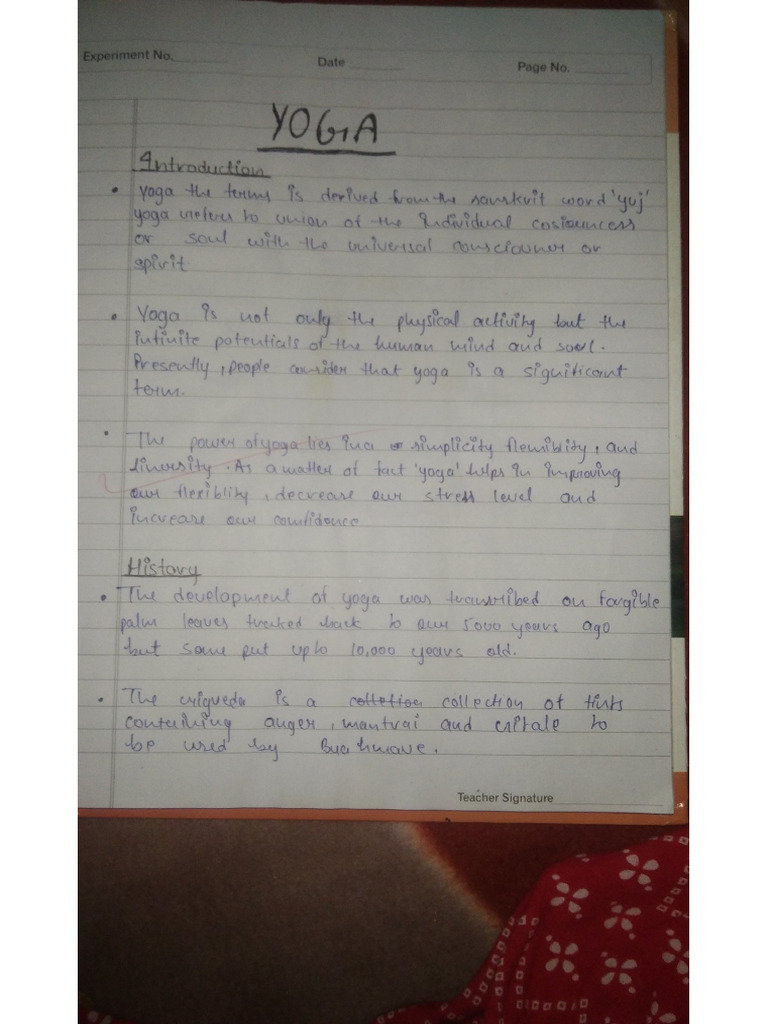 Experiment No. Date Page No.
YOGA
Introduction
• Yoga the terms is derived from the sanskrit word 'yuj'
yoga refers to union of the individual cosiouncess
or soul with the universal consciouner or
spirit
• Yoga is not only the physical activity but the
infinite potentials of the human mind and soul.
Presently, people consider that yoga is a significant
term.
• The power of yoga lies in simplicity flemiblity, and
diversity. As a matter of fact 'yoga' helps in improving
our flexiblity, decrease our stress level and
increase our confidence
History
• The development of yoga was transribed on forgible
palm leaves tracked back to our 5000 years ago
but some put upto 10,000 years old.
• The rigveda is a collection collection of tints
containing auger, mantrai and to
be used by
Teacher Signature